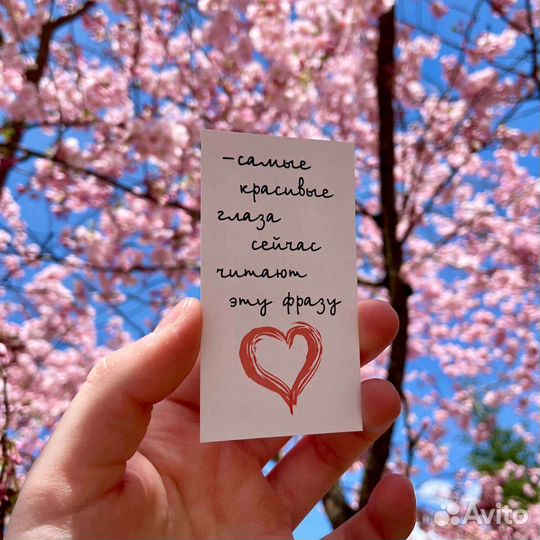 –самые
красивые
глаза
сейчас
читают
эту фразу
Avito